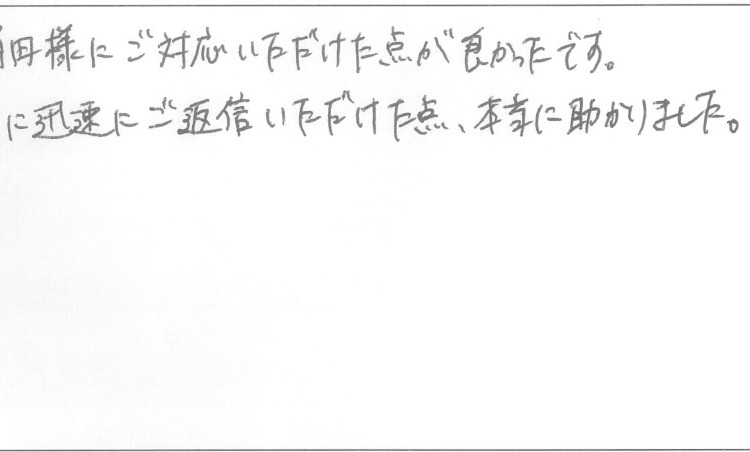 田様にご対応いただけた点が良かったです。
に迅速にご返信いただけた点、本当に助かりました。